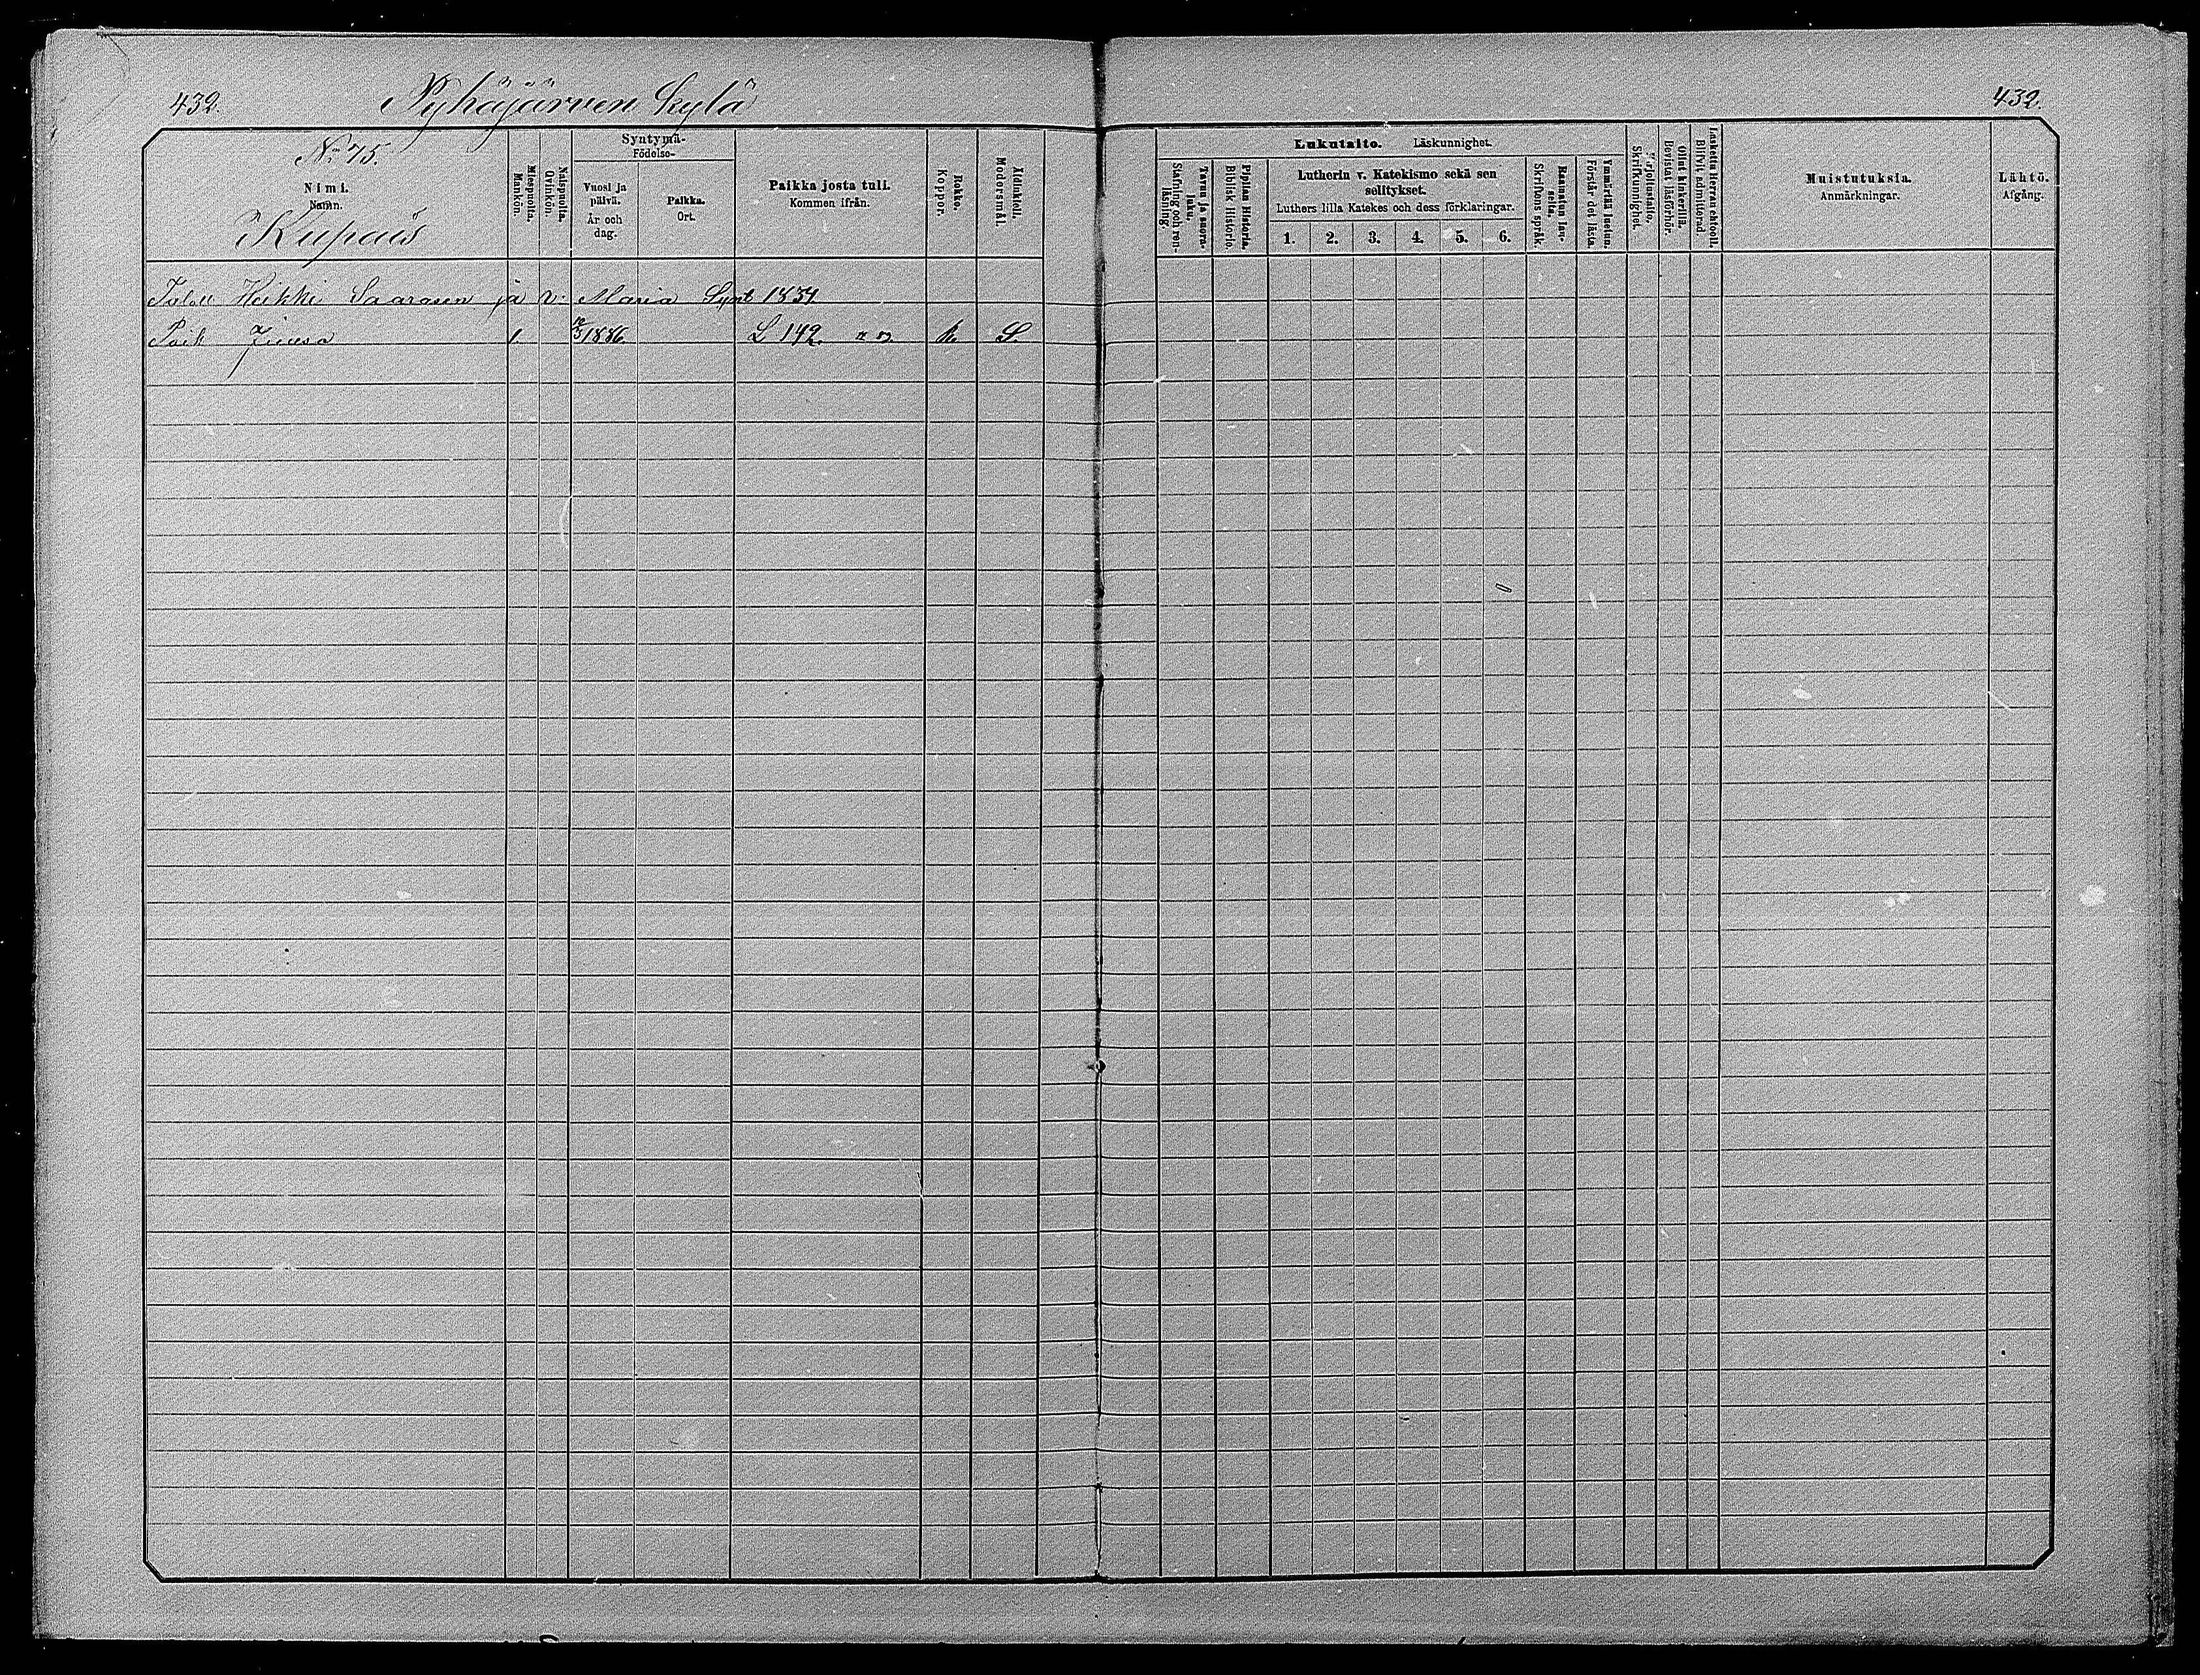 432.
Pyhäjärven kylä
432.
No 75.
Nimi.
Namn.
Kupais
Miespuolia.
Mankön.
Naispuolia.
Qvinkön.
Syntymä-
Födelse-
Vuosi ja
päivä.
År och
dag.
Paikka.
Ort.
Paikka josta tuli.
Kommen ifrån.
Rokko.
Koppor.
Äidinkieli.
Modersmål.
Lukutaito. Läskunnighet.
Tavuu ja suora-
luku.
Stafning och ren-
läsning.
Piplian Historia.
Biblisk Historie.
Lutherin v. Katekismo sekä sen
selitykset.
Luthers lilla Katekes och dess förklaringar.
1. 2. 3. 4. 5. 6.
Raamatun lau-
seita.
Skriftens språk.
Ymmärtää luetun.
Förstår det lästa.
Kirjoitustaito.
Skrifkunnighet.
Ollut kinkerillä.
Bevistat läsförhör.
Laskettu Herran ehtooll.
Blifvit admitterad.
Muistutuksia.
Anmärkningar.
Lähtö.
Afgång.
Heikki Saarasen ja v. Maria Synt 1834
Poik 1. 1886 L 142. k. S.